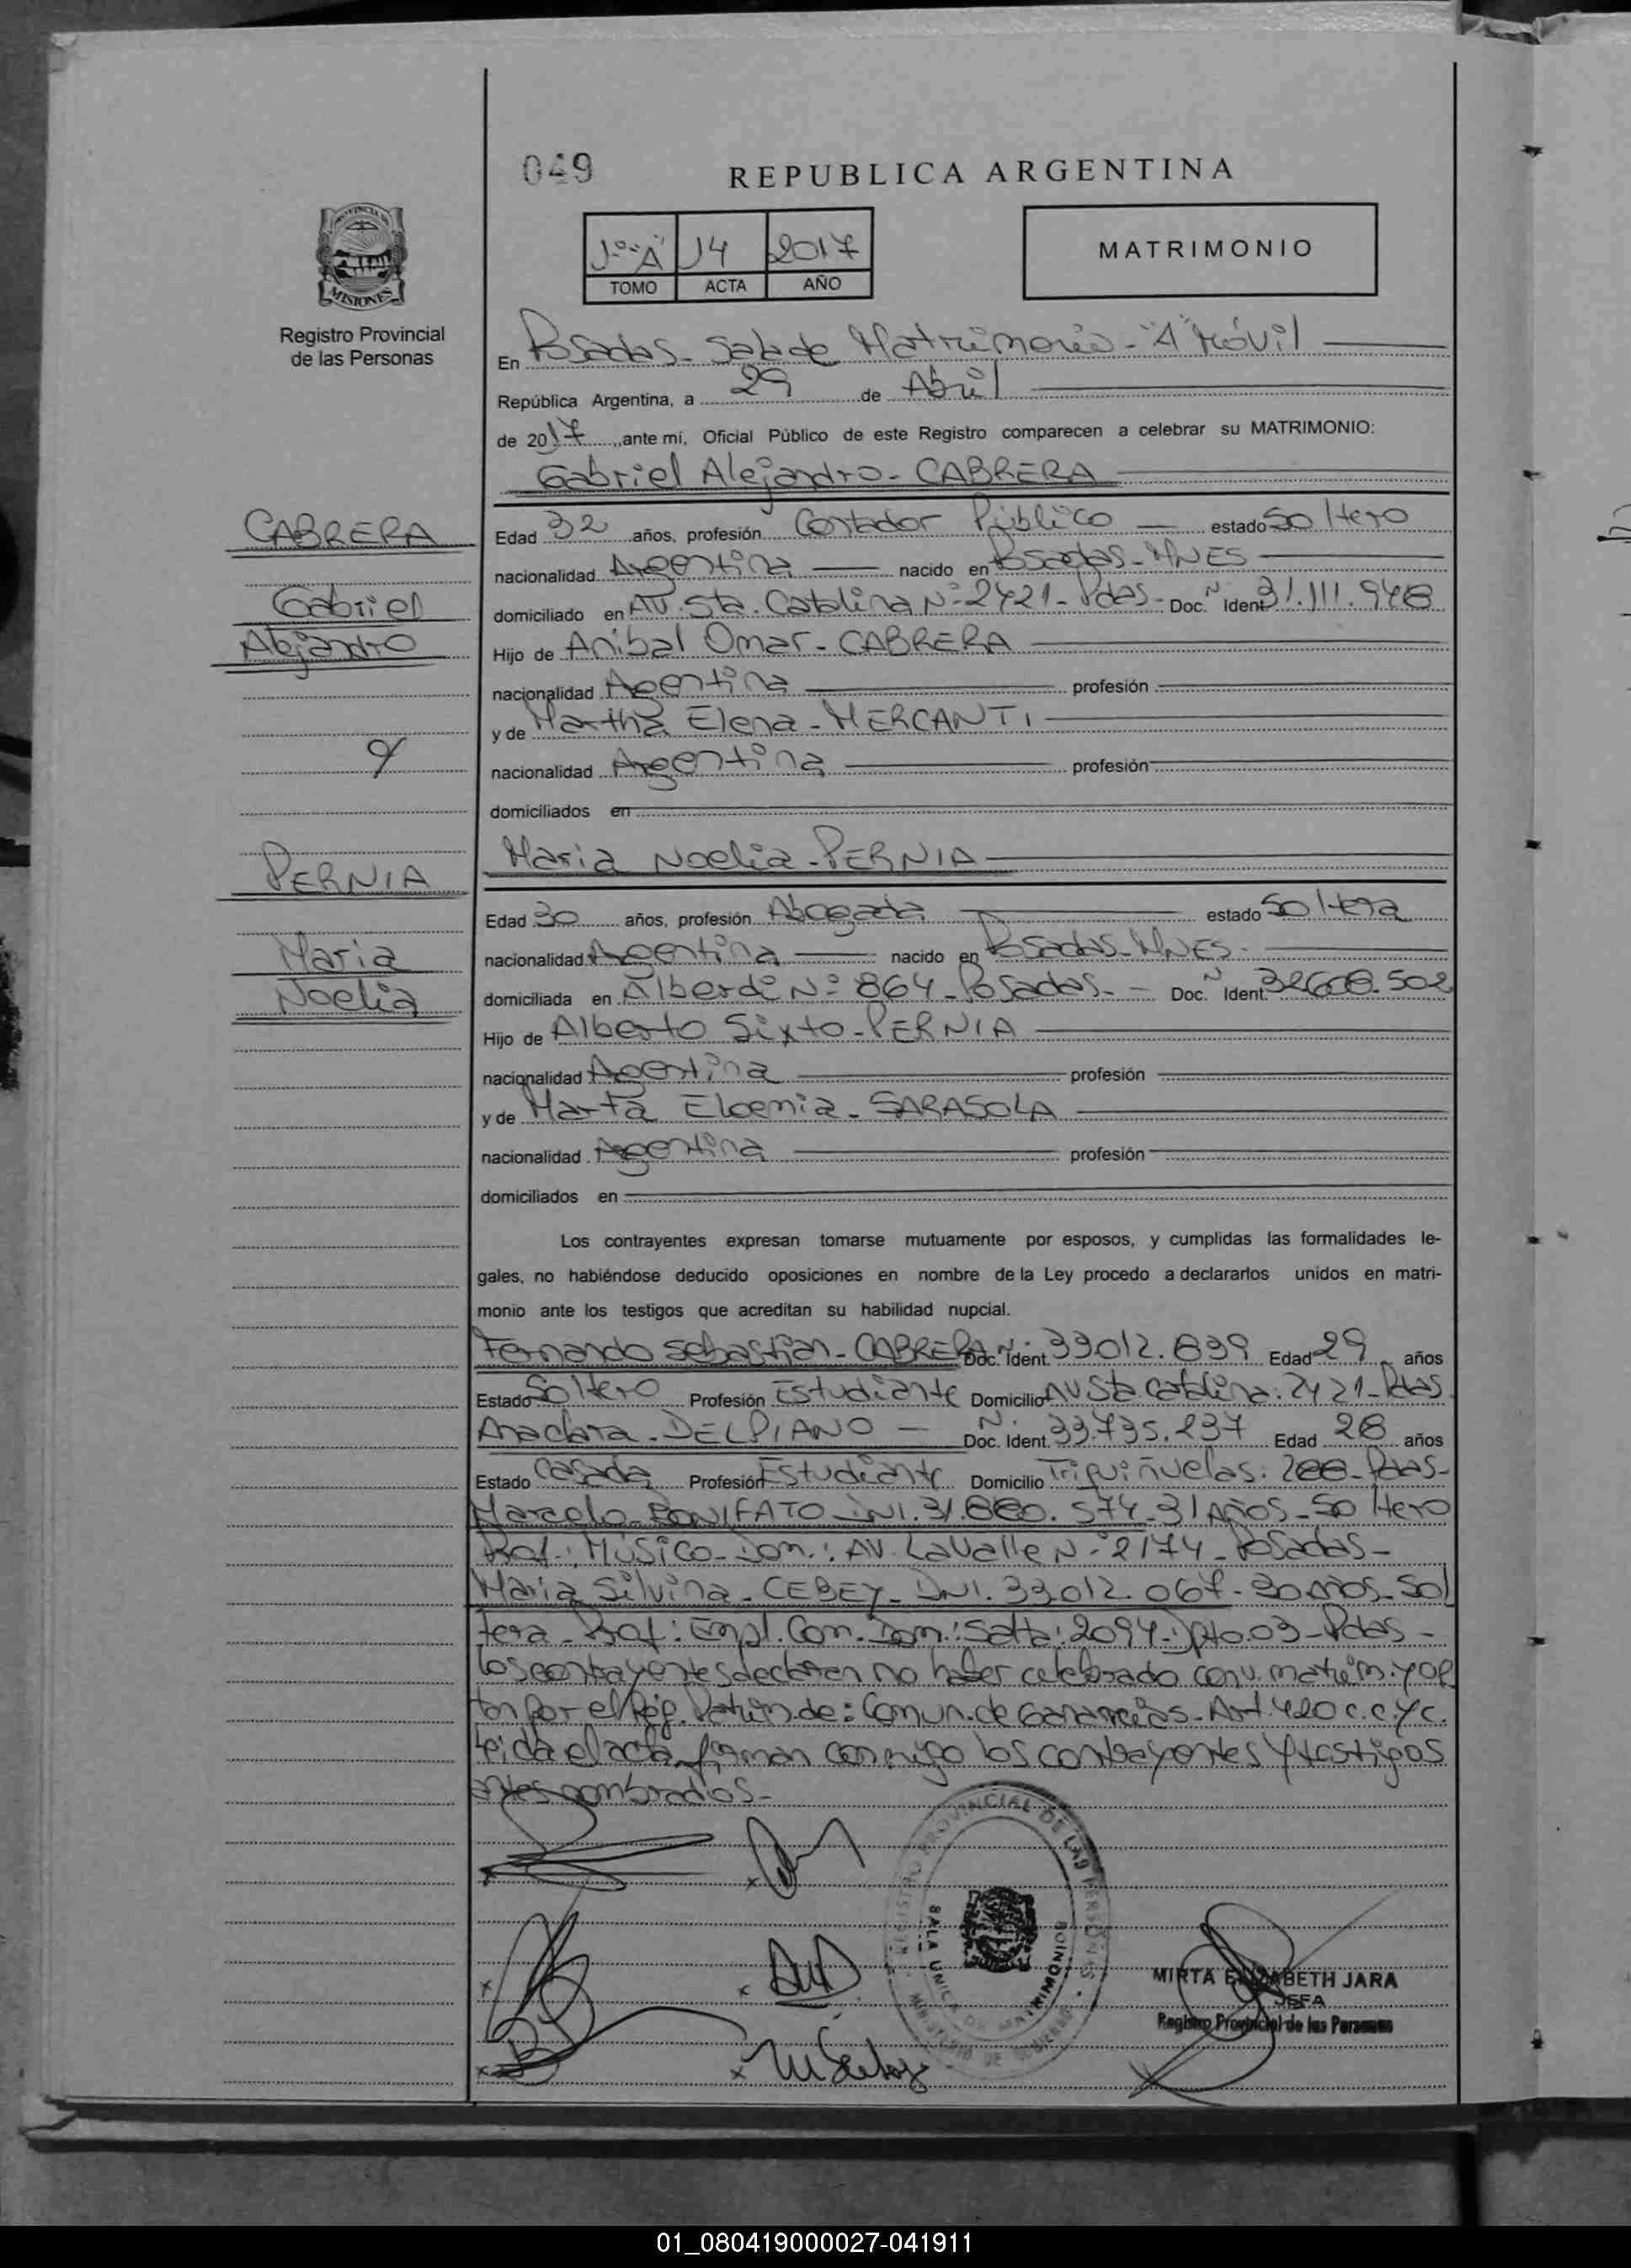 049
REPUBLICA ARGENTINA
1º "A" 14 2017
TOMO ACTA AÑO
MATRIMONIO
PROVINCIA DE
MISIONES
Registro Provincial
de las Personas
En Posadas - Sala de Matrimonio - "A" Móvil
República Argentina, a 29 de Abril
de 2017, ante mi, Oficial Público de este Registro comparecen a celebrar su MATRIMONIO:
Gabriel Alejandro - CABRERA
CABRERA
Gabriel
Alejandro
Edad 32 años, profesión Contador Público estado Soltero
nacionalidad Argentina nacido en Posadas - MNES
domiciliado en AV. Sta. Catalina Nº 2421 - Pdas - Doc. Nº Ident 31.111.948
Hijo de Anibal Omar - CABRERA
nacionalidad Argentina profesión
y de Martha Elena - MERCANTI
nacionalidad Argentina profesión
domiciliados en
y
PERNIA
Maria
Noelia
Maria Noelia - PERNIA
Edad 30 años, profesión Abogada estado Soltera
nacionalidad Argentina nacido en Posadas - MNES -
domiciliada en Alberdi Nº 864 - Posadas - Doc. Nº Ident. 32608.502
Hijo de Alberto Sixto - PERNIA
nacionalidad Argentina profesión
y de Marta - SARASOLA
nacionalidad Argentina profesión
domiciliados en
Los contrayentes expresan tomarse mutuamente por esposos, y cumplidas las formalidades le-
gales, no habiéndose deducido oposiciones en nombre de la Ley procedo a declararlos unidos en matri-
monio ante los testigos que acreditan su habilidad nupcial.
Fernando Sebastian - CABRERA Doc. Ident. Nº 33.012.839 Edad 29 años
Estado Soltero Profesión Estudiante Domicilio AV Sta Catalina: 2421 - Pdas
Anaclara - DELPIANO - Doc. Ident. Nº 33.735.237 Edad 28 años
Estado Casada Profesión Estudiante Domicilio Triquiñuelas: 288 - Pdas -
Marcelo - BONIFATO - DNI. 31.880.574 - 31 Años - Soltero
Prof.: Músico - Dom.: AV. Lavalle Nº 2174 - Posadas -
Maria Silvina - CEBEY - DNI. 33.012.067 - 30 años - Sol
tera - Prof: Empl. Com. Dom.: Salta: 2094 - Dpto. 03 - Pdas -
los contrayentes declaran no haber celebrado conv. matrim. y op
tan por el Rég. Patrim de: Comun. de Ganancias - Art 420 c.c.yc.
leida el acta, firman conmigo los contrayentes y testigos
antes nombrados -
REGISTRO PROVINCIAL DE LAS PERSONAS
SALA UNICA DE MATRIMONIO
MINISTERIO DE GOBIERNO
MIRTA ELIZABETH JARA
JEFA
Registro Provincial de las Personas
01_080419000027-041911